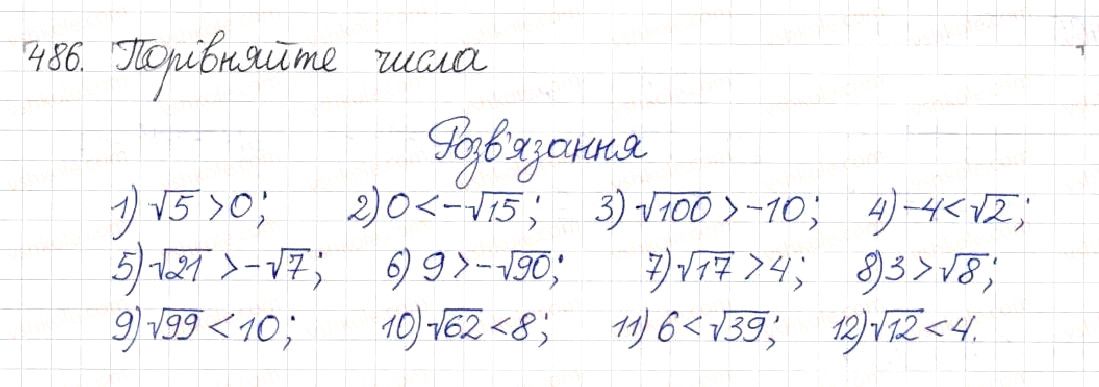 486. Порівняйте числа
Розв'язання
1) √5 > 0; 2) 0 < -√15; 3) √100 > -10; 4) -4 < √2;
5) √21 > -√7; 6) 9 > -√90; 7) √17 > 4; 8) 3 > √8;
9) √99 < 10; 10) √62 < 8; 11) 6 < √39; 12) √12 < 4.